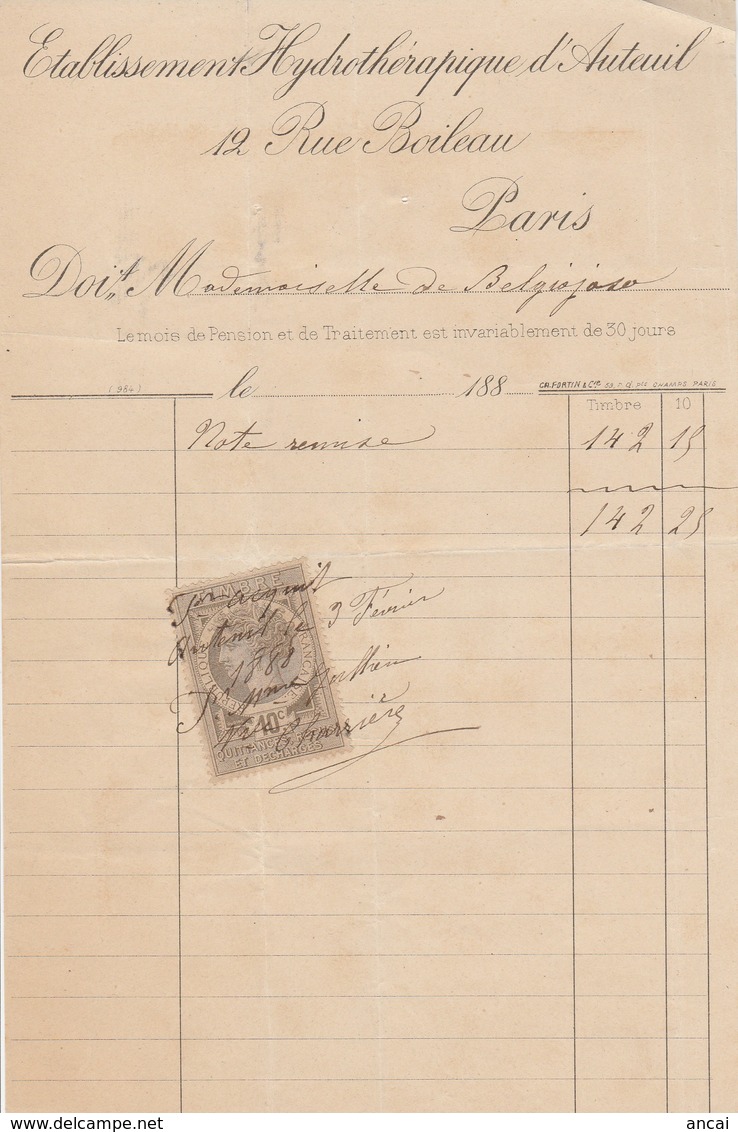 Etablissement Hydrothérapique d'Auteuil
12 Rue Boileau
Paris
Doit M ademoiselle de Belgiojoso
Le mois de Pension et de Traitement est invariablement de 30 jours
(984) le 188 CH. FORTIN & Cie 59, r. d. pts CHAMPS PARIS
Timbre 10
Note remise 142 15
142 25
TIMBRE
Pr acquit
Auteuil le 3 Février
1888
Pr Mme
Charrière
REPUBLIQUE FRANCAISE
10c
QUITTANCES
ET DECHARGES
ancai